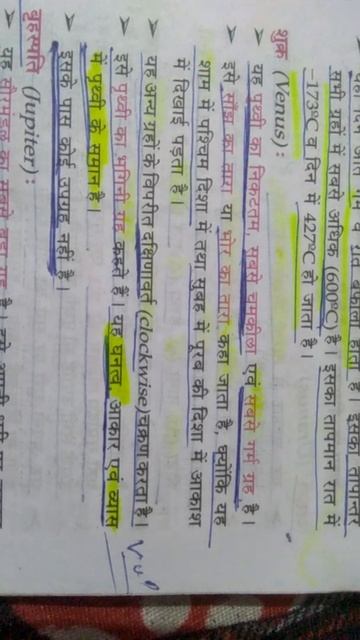 सभी ग्रहों में सबसे अधिक (600°C) है। इसका तापमान रात में
–173°C व दिन में 427°C हो जाता है।
शुक्र (Venus) :
➤ यह पृथ्वी का निकटतम, सबसे चमकीला एवं सबसे गर्म ग्रह है।
➤ इसे साँझ का तारा या भोर का तारा कहा जाता है, क्योंकि यह
शाम में पश्चिम दिशा में तथा सुबह में पूरब की दिशा में आकाश
में दिखाई पड़ता है।
➤ यह अन्य ग्रहों के विपरीत दक्षिणावर्त (clockwise) चक्रण करता है।
➤ इसे पृथ्वी का भगिनी ग्रह कहते हैं। यह घनत्व, आकार एवं व्यास
में पृथ्वी के समान है।
➤ इसके पास कोई उपग्रह नहीं है।
बृहस्पति (Jupiter) :
➤ यह सौरमंडल का सबसे बड़ा ग्रह है।